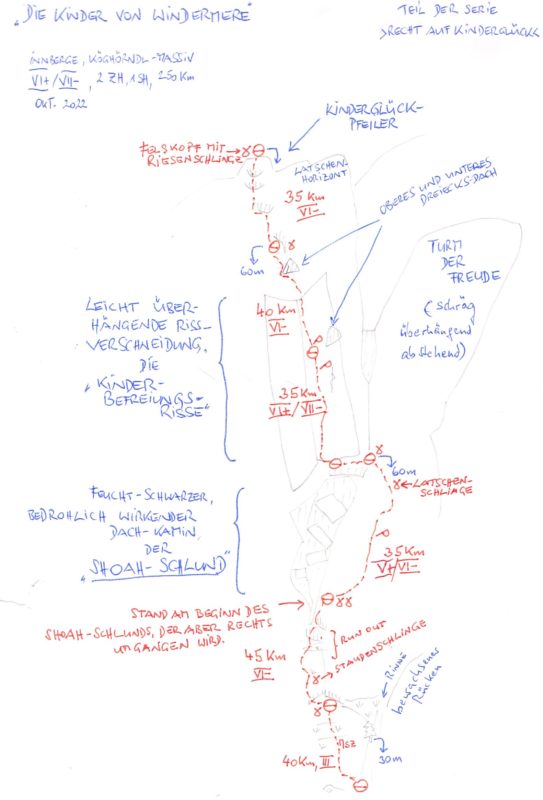 „DIE KINDER VON WINDERMERE“
TEIL DER SERIE
>RECHT AUF KINDERGLÜCK<
INNBERGE, KÖGLHÖRNDL-MASSIV
VI+/VII-, 2 ZH, 1SH, 250 Km
OKT. 2022
KINDERGLÜCK-
PFEILER
FELSKOPF MIT
RIESENSCHLINGE
LATSCHEN-
HORIZONT
35 Km
VI-
OBERES UND UNTERES
DREIECKS-DACH
60m
TURM
DER
FREUDE
(schräg
überhängend
abstehend)
LEICHT ÜBER-
HÄNGENDE RISS-
VERSCHNEIDUNG,
DIE
„KINDER-
BEFREIUNGS-
RISSE“
40 Km
VI-
35 Km
VI+/VII-
60m
LATSCHEN-
SCHLINGE
FEUCHT-SCHWARZER,
BEDROHLICH WIRKENDER
DACH-KAMIN,
DER
„SHOAH-SCHLUND“
35 Km
V+/VI-
STAND AM BEGINN DES
SHOAH-SCHLUNDS, DER ABER RECHTS
UMGANGEN WIRD.
RUN OUT
STAUDENSCHLINGE
45 Km
VI-
RINNE
bewachsener
Rücken
30m
40 Km, III